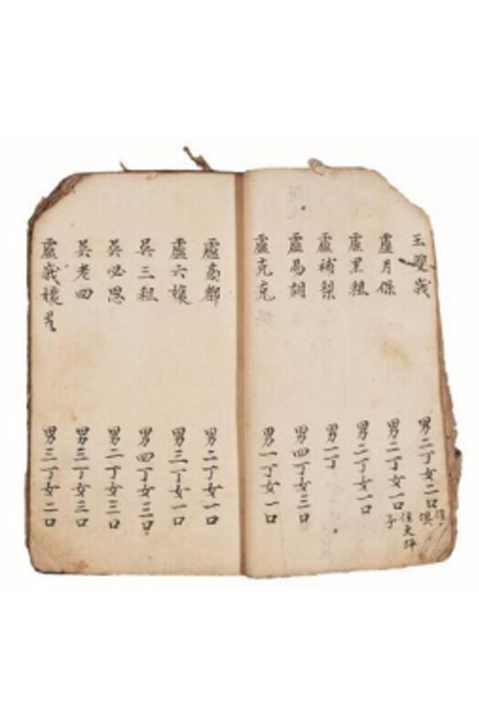 王峩 男二丁女二口
盧月保 男二丁女一口 子住大坪
盧黑租 男二丁女一口
盧補梨 男一丁
盧易調 男四丁女三口
盧克克 男一丁女一口
盧高都 男二丁女一口
盧六孃 男三丁女一口
吳三租 男四丁女三口
吳必恩 男二丁女三口
吳老四 男三丁女三口
盧峩孃 男三丁女二口